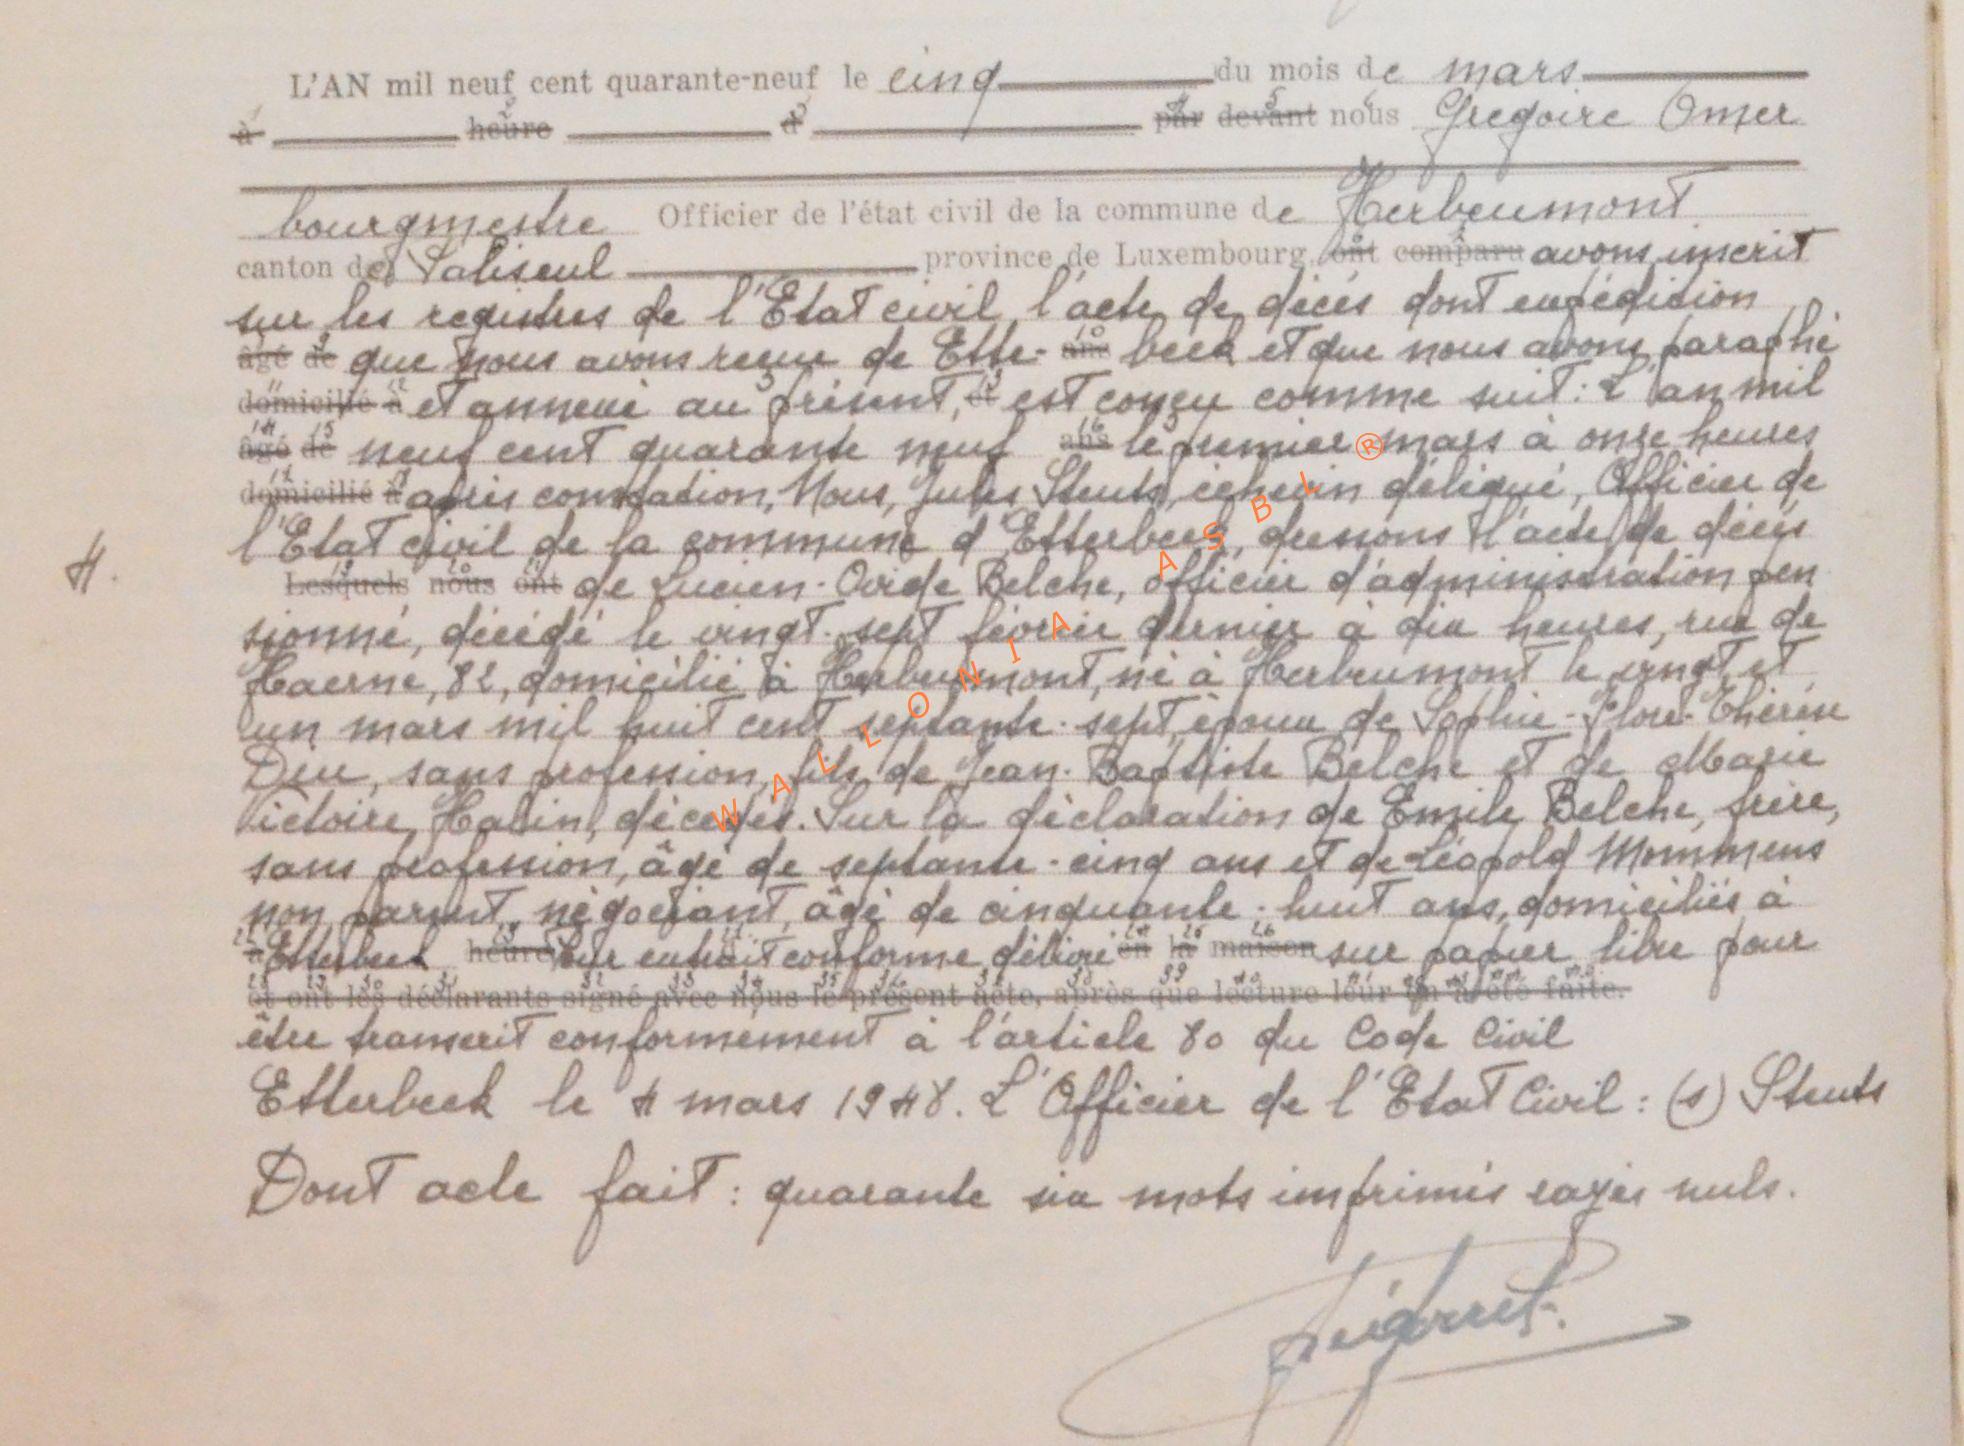 L'AN mil neuf cent quarante-neuf le cinq du mois de mars
à heure d par devant nous Gregoire Omer
bourgmestre Officier de l'état civil de la commune de Herbeumont
canton de Paliseul province de Luxembourg, ont comparu avons inscrit
sur les registres de l'Etat civil l'acte de décès dont expédition
âgé de que nous avons reçue de Ette- ans beek et que nous avons paraphé
domicilié à et annexé au présent, et est conçu comme suit: L'an mil
âgé de neuf cent quarante neuf ans le premier mars à onze heures
domicilié à après constation, Nous, Jules Stuts, échevin délégué, Officier de
l'Etat civil de la commune d'Etterbeek, dressons l'acte de décès
H.
Lesquels nous ont de Lucien-Ovide Belche, officier d'administration pen
sionné, décédé le vingt-sept février dernier à dix heures, rue de
Haerne, 82, domicilié à Herbeumont, né à Herbeumont le vingt et
un mars mil huit cent septante-sept, époux de Sophie-Flore-Thérèse
, sans profession, fils de Jean-Baptiste Belche et de Marie
Victoire Habin, décédés. Sur la déclaration de Emile Belche, frère,
sans profession, âgé de septante-cinq ans et de Léopold Mommens
non parent, négociant, âgé de cinquante-huit ans, domiciliés à
à Etterbeek heure Pour extrait conforme délivré en la maison sur papier libre pour
et ont les déclarants signé avec nous le présent acte, après que lecture leur en a été faite.
être transcrit conformement à l'article 80 du Code Civil
Etterbeek le 4 mars 1948. L'Officier de l'Etat Civil: (s) Stuts
Dont acte fait: quarante six mots imprimés rayés nuls.
WALLONIA ASBL ®